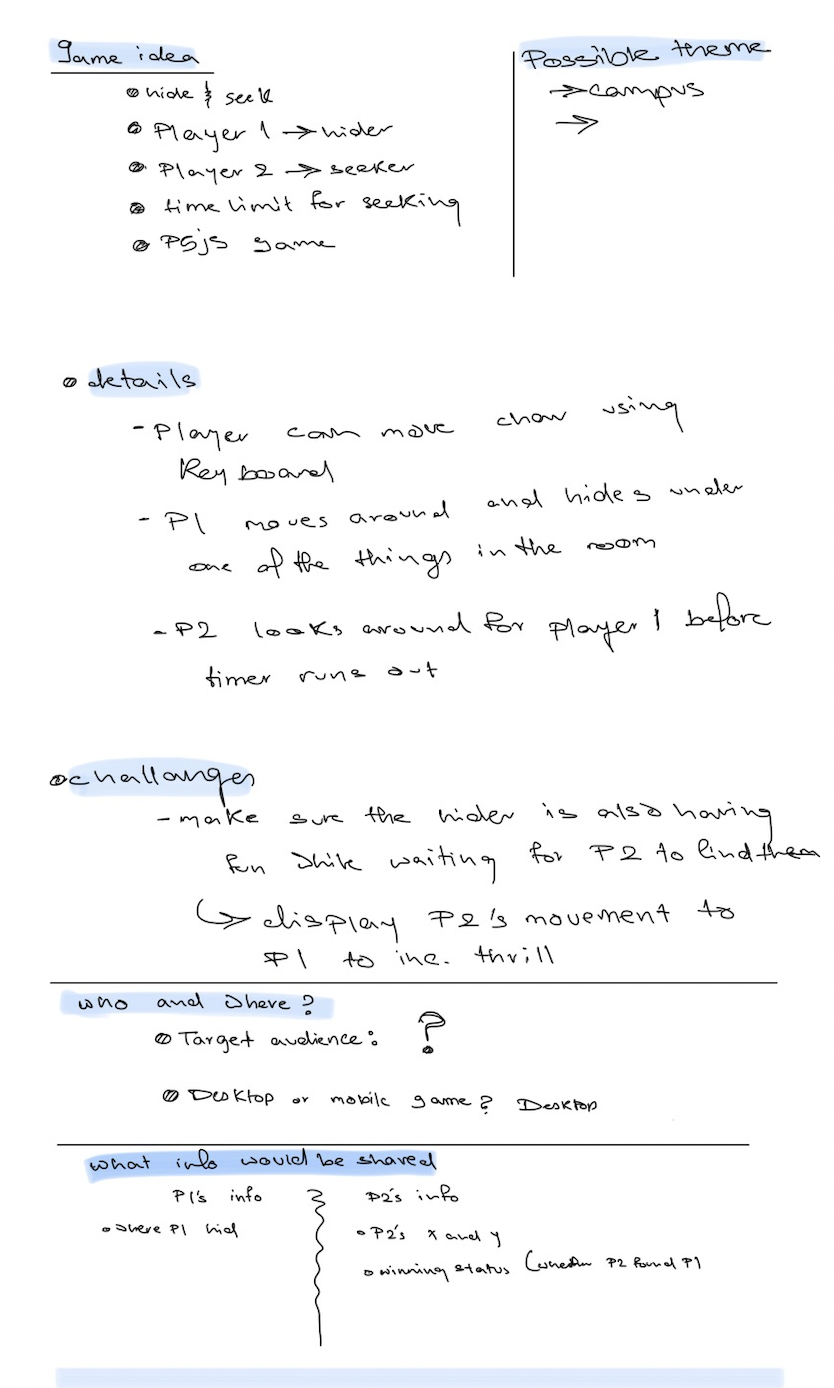 Game idea
hide & seek
Player 1 → hider
Player 2 → seeker
time limit for seeking
P5js game
Possible theme
→ campus
→
details
- Player can move char using
Key board
- P1 moves around and hides under
one of the things in the room
- P2 looks around for player 1 before
timer runs out
challanges
- make sure the hider is also having
fun while waiting for P2 to find them
↳ display P2's movement to
P1 to inc. thrill
who and where?
Target audience: ?
Desktop or mobile game? Desktop
what info would be shared
P1's info
where P1 hid
P2's info
P2's x and y
winning status (whether P2 found P1